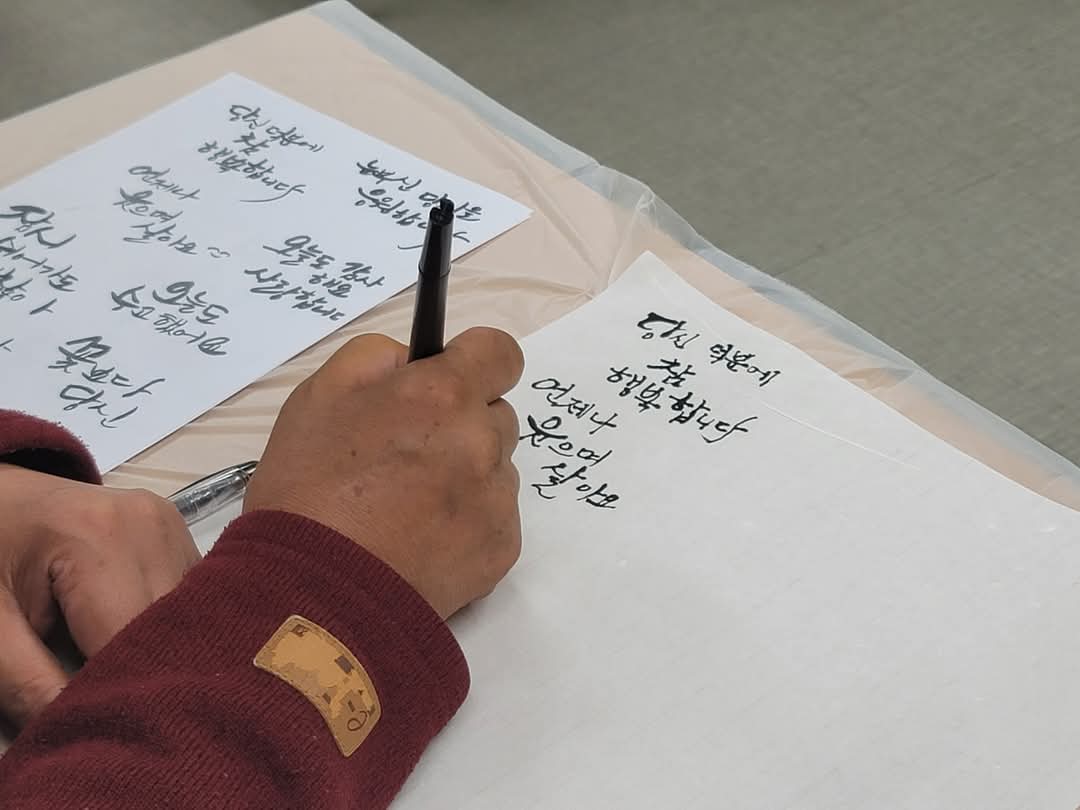 당신 덕분에
참
행복합니다
눈부신 당신을
응원합니다
언제나
웃으며
살아요~
오늘도 감사
해요
사랑합니다
오늘도
수고했어요
꽃보다
당신
당신 덕분에
참
행복합니다
언제나
웃으며
살아요